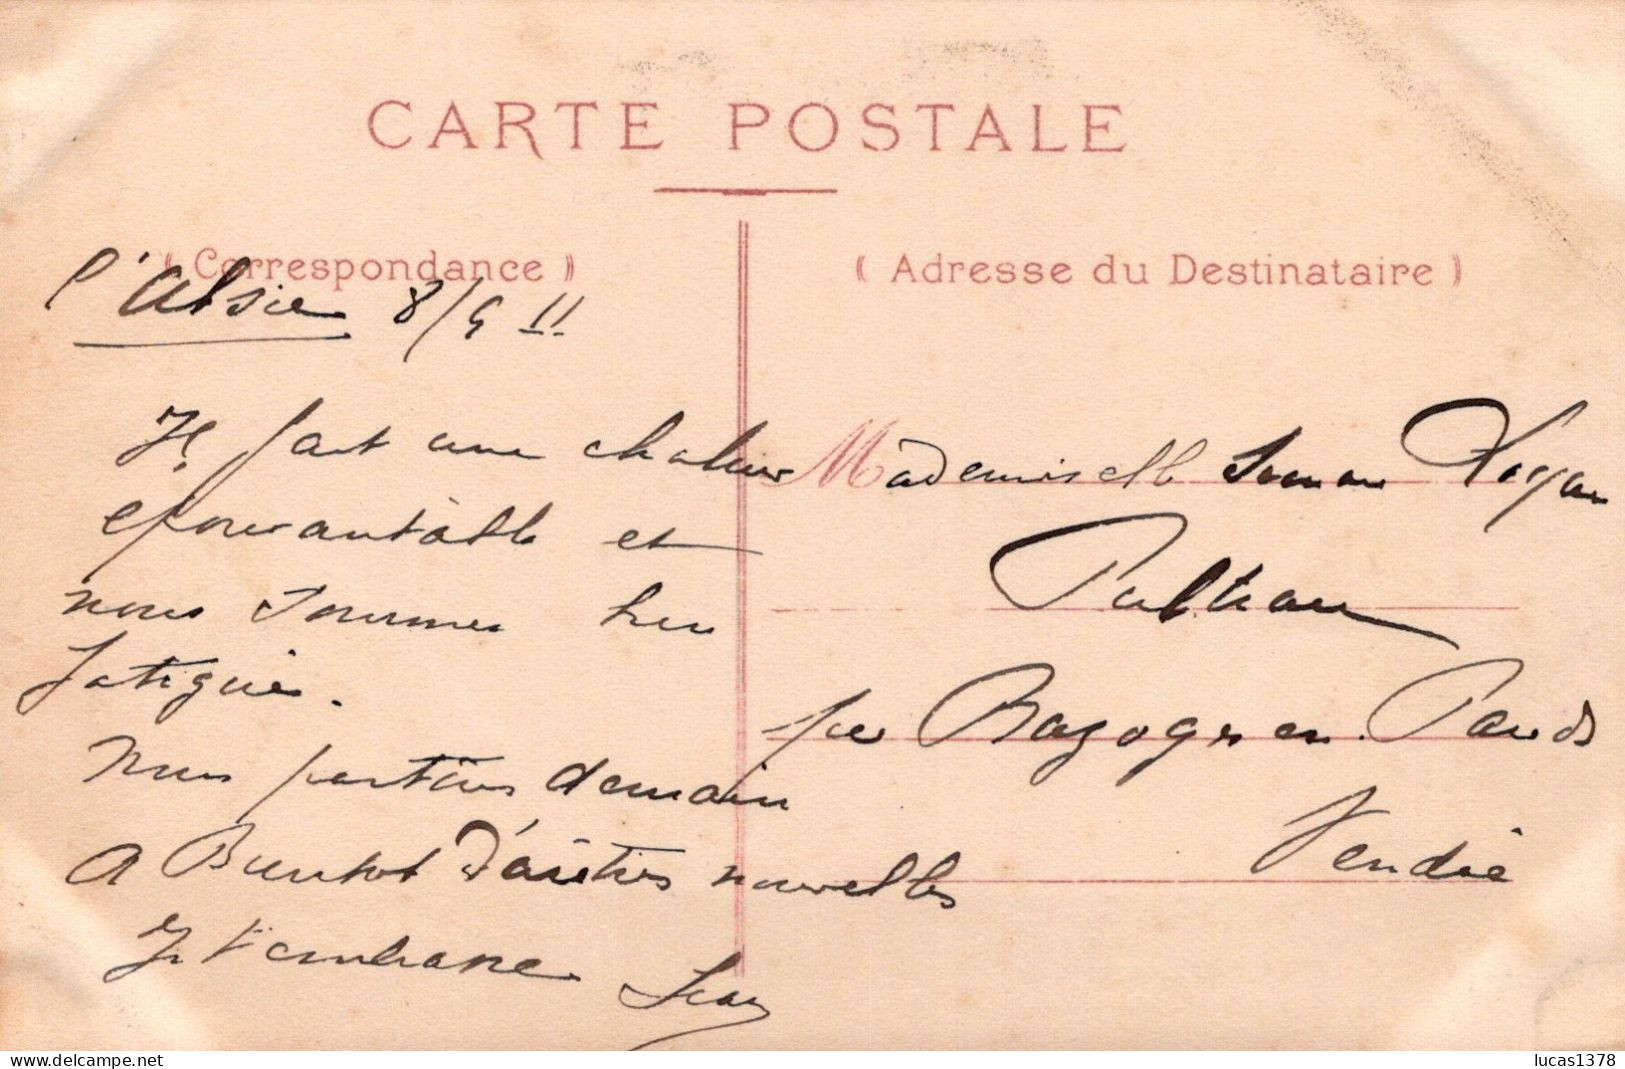 CARTE POSTALE
( Correspondance )
8/9 11
Il fait une chaleur
épouvantable et
nous sommes très
fatigués.
Nous partons demain
A Bientot d'autres nouvelles
Je t'embrasse
Jean
( Adresse du Destinataire )
Mademoiselle
Pulteau
par Bazoges en Pareds
Vendée
delcampe.net
lucas1378